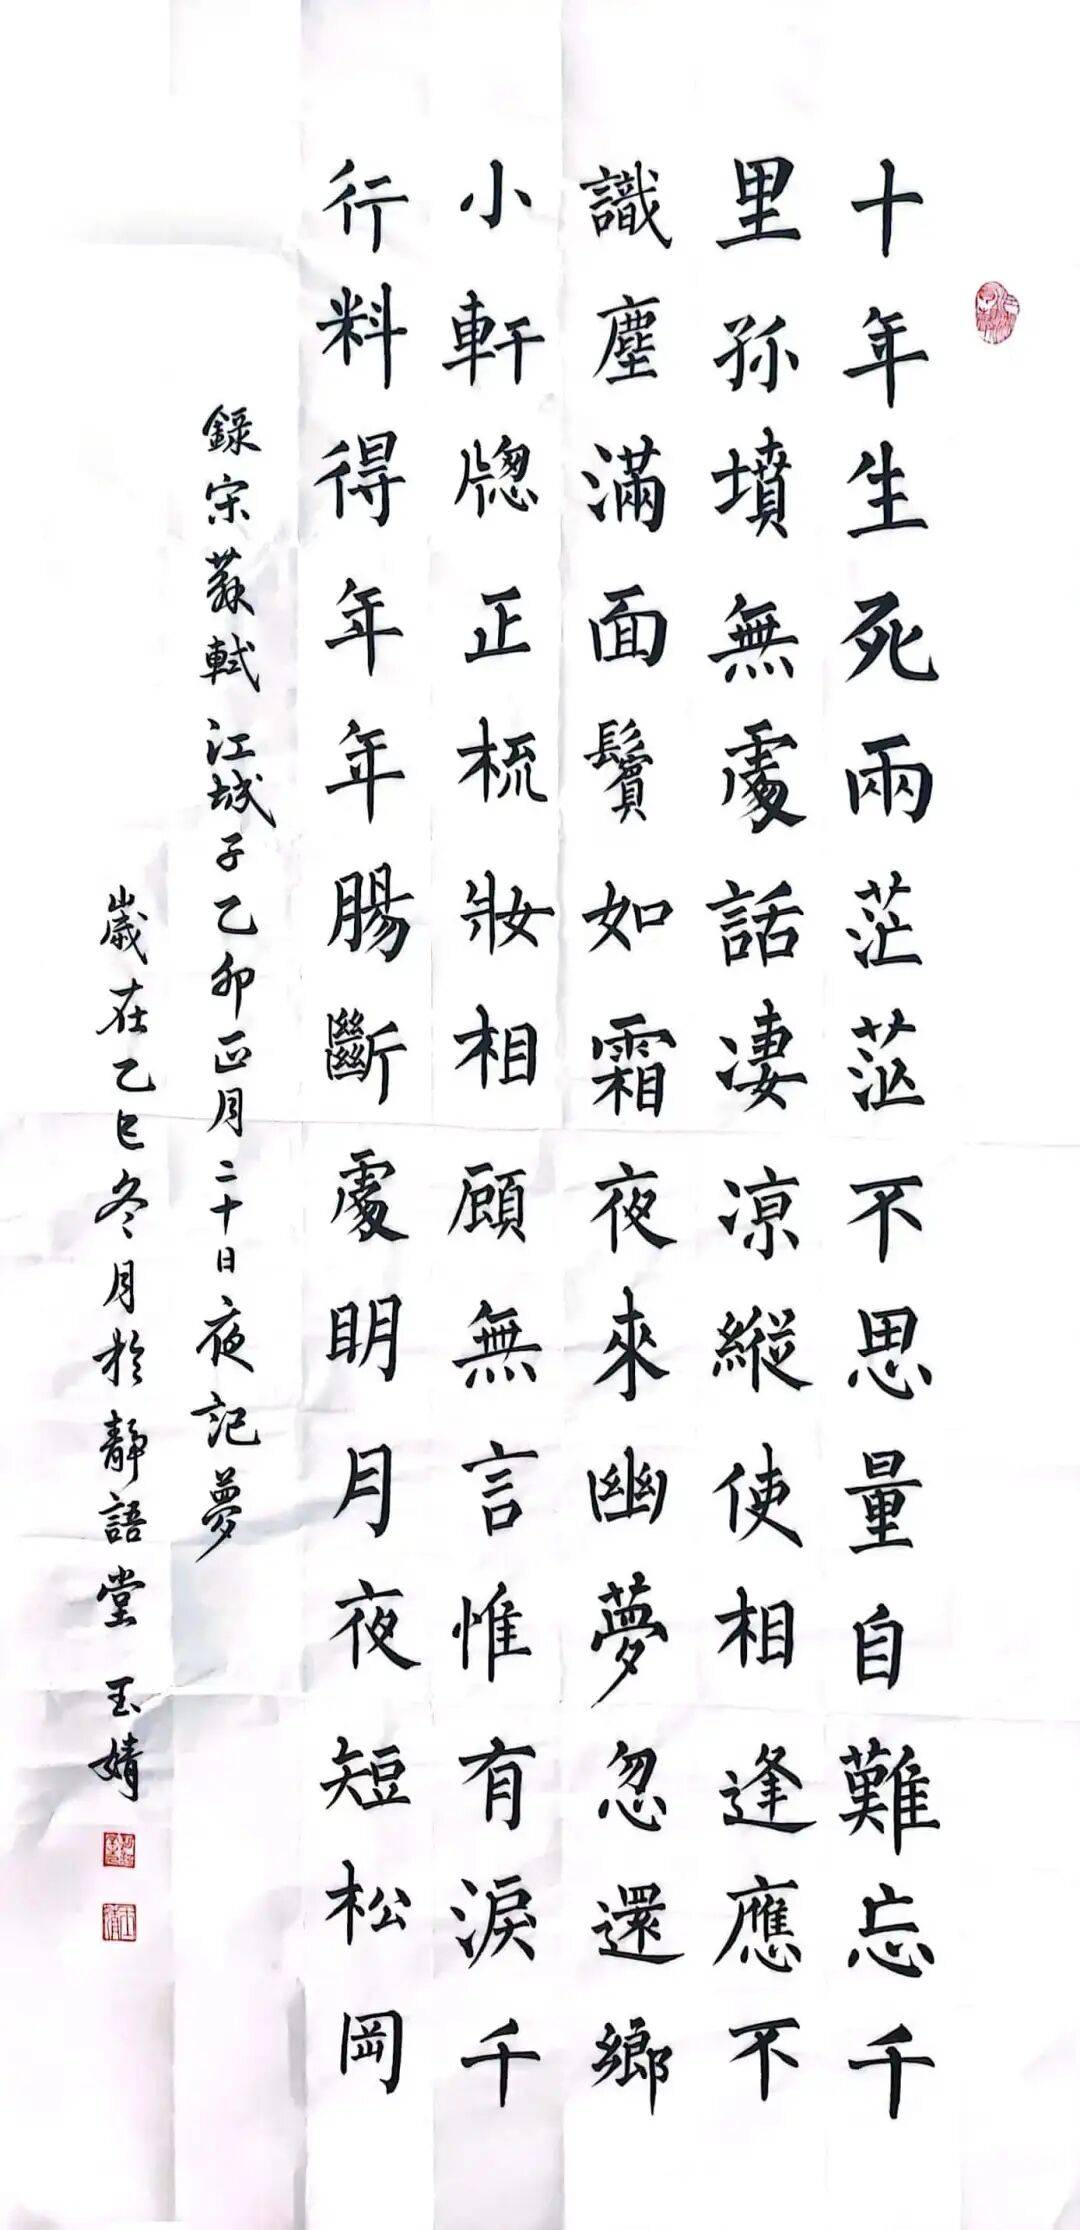 十年生死兩茫茫不思量自難忘千
里孫墳無處話凄涼縱使相逢應不
識塵滿面鬢如霜夜來幽夢忽還鄉
小軒窻正梳妝相顧無言惟有淚千
行料得年年腸斷處明月夜短松岡
錄宋蘇軾江城子乙卯正月二十日夜記夢
歲在乙巳冬月於靜語堂玉婧